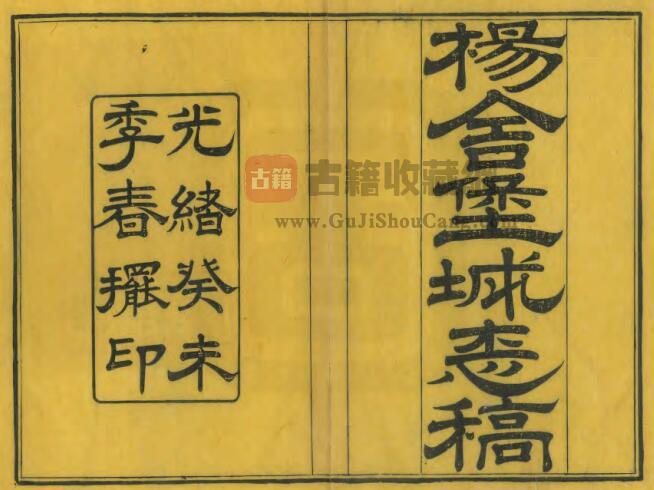 楊舍堡城志稿
光緒癸未
季春擺印
古籍
古籍收藏
www.GuJiShouCang.com